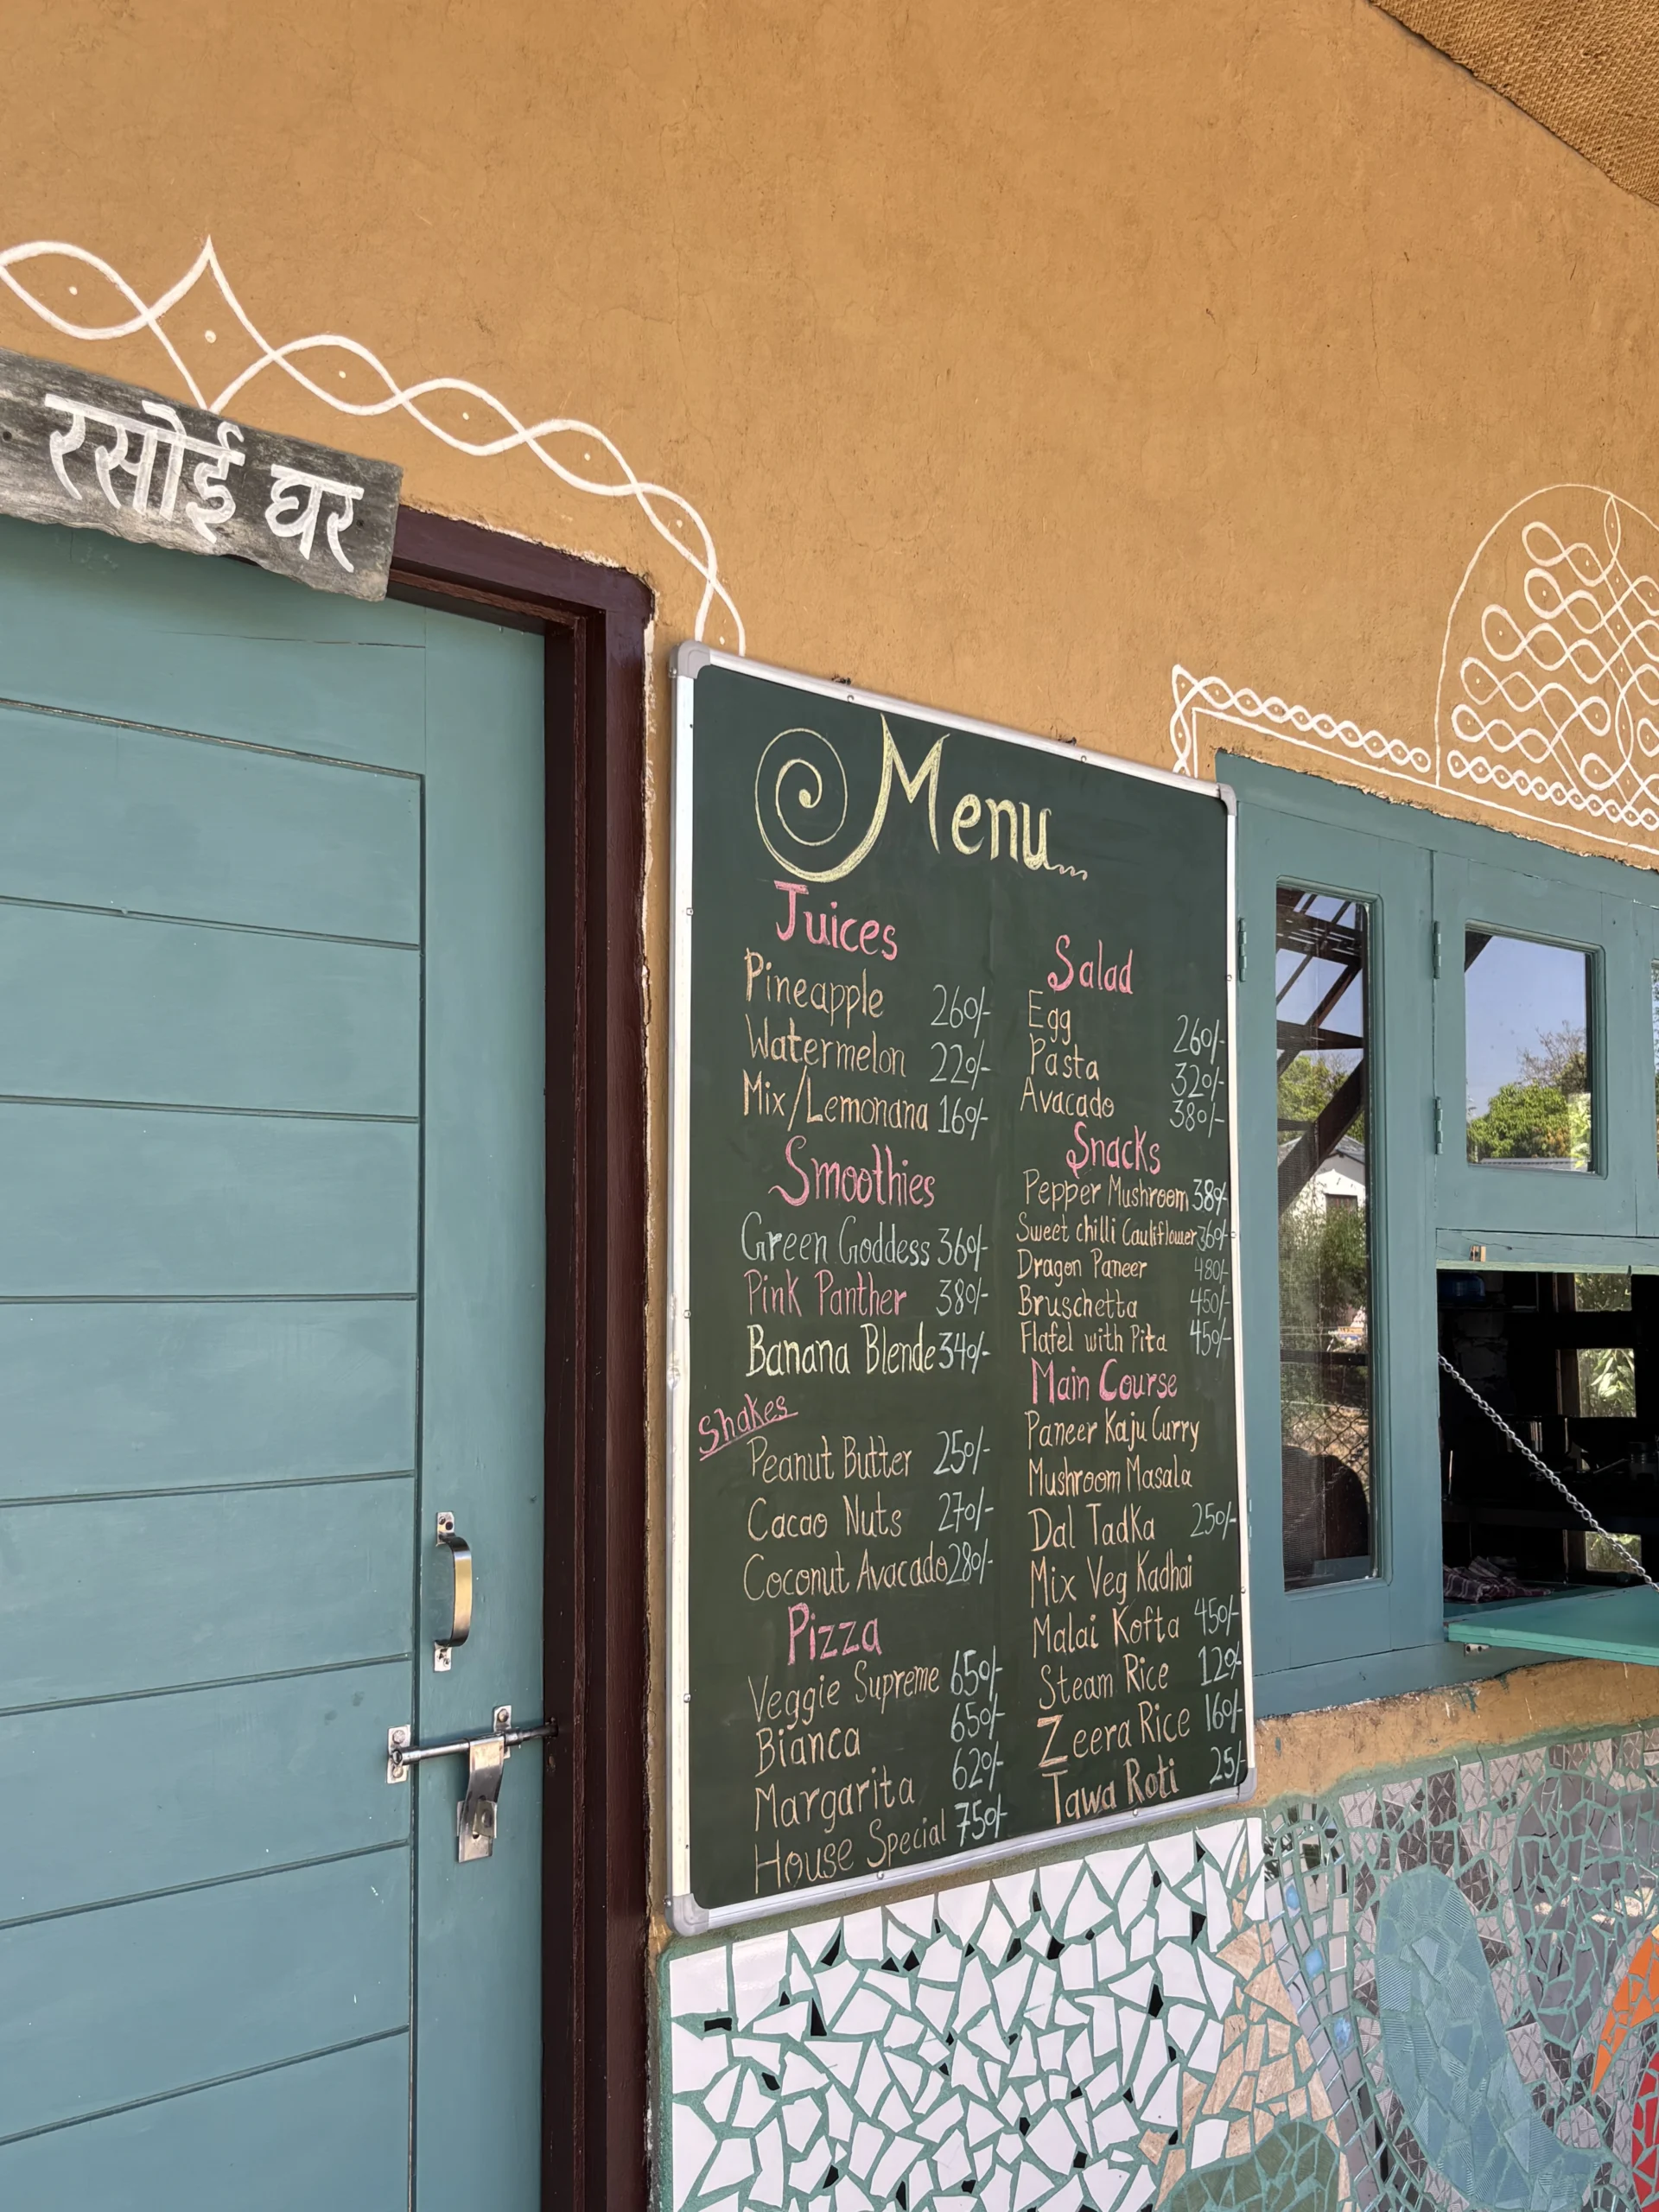 रसोई घर
Menu...
Juices
Pineapple 260/-
Watermelon 220/-
Mix/Lemonana 160/-
Smoothies
Green Goddess 360/-
Pink Panther 380/-
Banana Blende 340/-
Shakes
Peanut Butter 250/-
Cacao Nuts 270/-
Coconut Avacado 280/-
Pizza
Veggie Supreme 650/-
Bianca 650/-
Margarita 620/-
House Special 750/-
Salad
Egg 260/-
Pasta 320/-
Avacado 380/-
Snacks
Pepper Mushroom 380/-
Sweet chilli Cauliflower 360/-
Dragon Paneer 480/-
Bruschetta 450/-
Flafel with Pita 450/-
Main Course
Paneer Kaju Curry
Mushroom Masala
Dal Tadka 250/-
Mix Veg Kadhai
Malai Kofta 450/-
Steam Rice 120/-
Zeera Rice 160/-
Tawa Roti 25/-